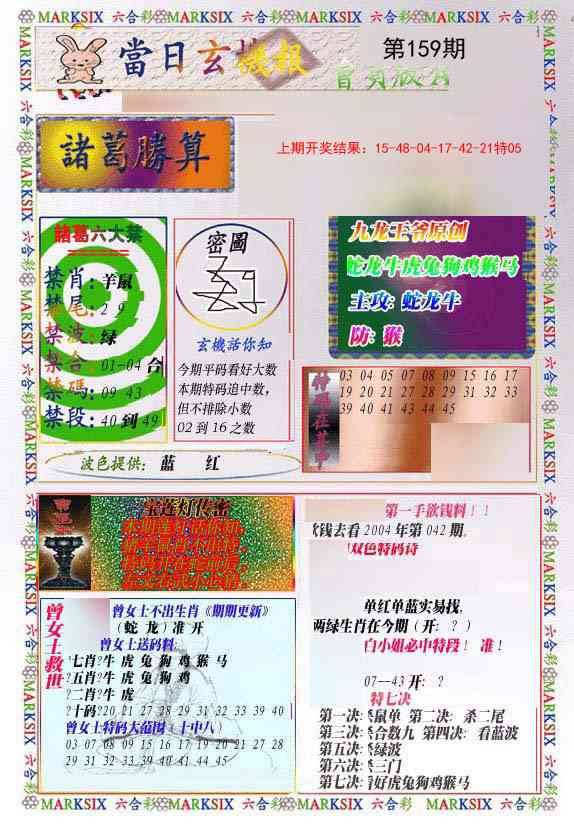 MARKSIX 六合彩 MARKSIX 六合彩 MARKSIX 六合彩 MARKSIX 六合彩
當日玄機報
第159期
諸葛勝算
上期开奖结果：15-48-04-17-42-21特05
諸葛六大禁
禁肖：羊鼠
禁尾：2 9
禁波：绿
禁合：01-04 合
禁碼：09 43
禁段：40 到 49
密圖
玄機話你知
今期平码看好大数
本期特码追中数，
但不排除小数
02 到 16 之数
波色提供： 蓝 红
九龙王爷原创
蛇龙牛虎兔狗鸡猴马
主攻: 蛇龙牛
防: 猴
03 04 05 07 08 09 15 16 17
19 20 21 27 28 29 31 32 33
39 40 41 43 44 45
宝莲灯传密
曾女士救世
曾女士不出生肖《期期更新》
（蛇 龙）准 开
曾女士送码料:
七肖?牛 虎 兔 狗 鸡 猴 马
?五肖?牛 虎 兔 狗 鸡
?二肖?牛 虎
?十码?20 21 27 28 29 31 32 33 39 40
曾女士特码大范围（十中八）
03 07 08 09 15 16 17 19 20 21 27 28
29 31 32 33 39 40 41 44 45
第一手欲钱料！！
欲钱去看 2004 年第 042 期。
双色特码诗
单红单蓝实易找,
两绿生肖在今期（开: ？）
白小姐必中特段！ 准！
07--43 开: ？
特七决
第一决:杀鼠单 第二决: 杀二尾
第三决:杀合数九 第四决: 看蓝波
第五决:杀绿波
第六决:杀三门
第七决:看好虎兔狗鸡猴马
MARKSIX 六合彩 MARKSIX 六合彩 MARKSIX 六合彩 MARKSIX 六合彩